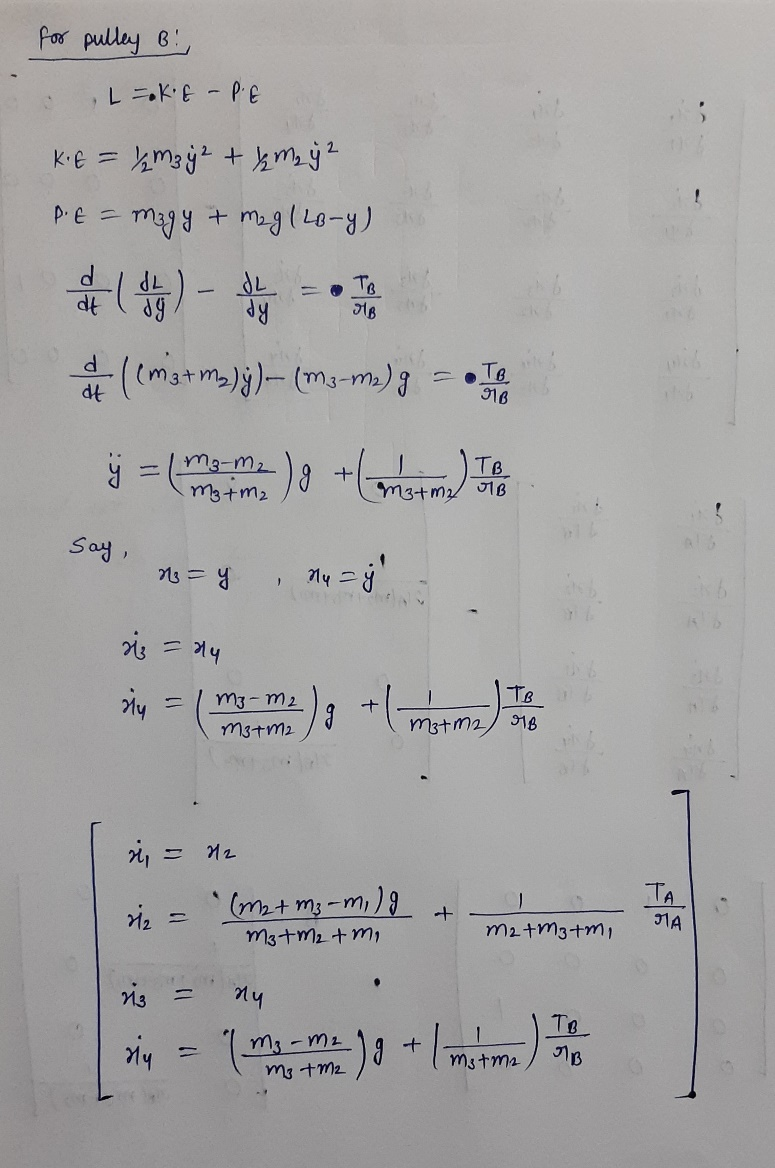 for pulley B:,
L = K.E - P.E
K.E = ½m₃ẏ² + ½m₂ẏ²
P.E = m₃gy + m₂g(LB-y)
d/dt (dL/dẏ) - dL/dy = TB/rB
d/dt ((m₃+m₂)ẏ) - (m₃-m₂)g = TB/rB
ÿ = (m₃-m₂/m₃+m₂)g + (1/m₃+m₂) TB/rB
Say,
x₃ = y , x₄ = ẏ
ẋ₃ = x₄
ẋ₄ = (m₃-m₂/m₃+m₂)g + (1/m₃+m₂) TB/rB
ẋ₁ = x₂
ẋ₂ = (m₂+m₃-m₁)g/m₃+m₂+m₁ + 1/m₂+m₃+m₁ TA/rA
ẋ₃ = x₄
ẋ₄ = (m₃-m₂/m₃+m₂)g + (1/m₃+m₂) TB/rB